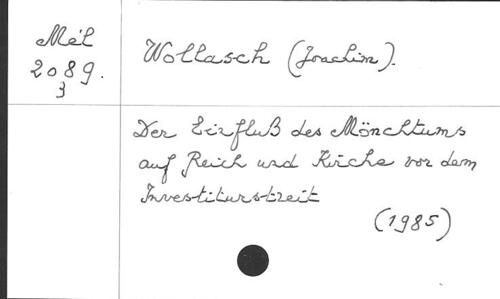 Mél
2089.
3
Wollasch (Joachim).
Der Einfluß des Mönchtums
auf Reich und Kirche vor dem
Investiturstreit
(1985)